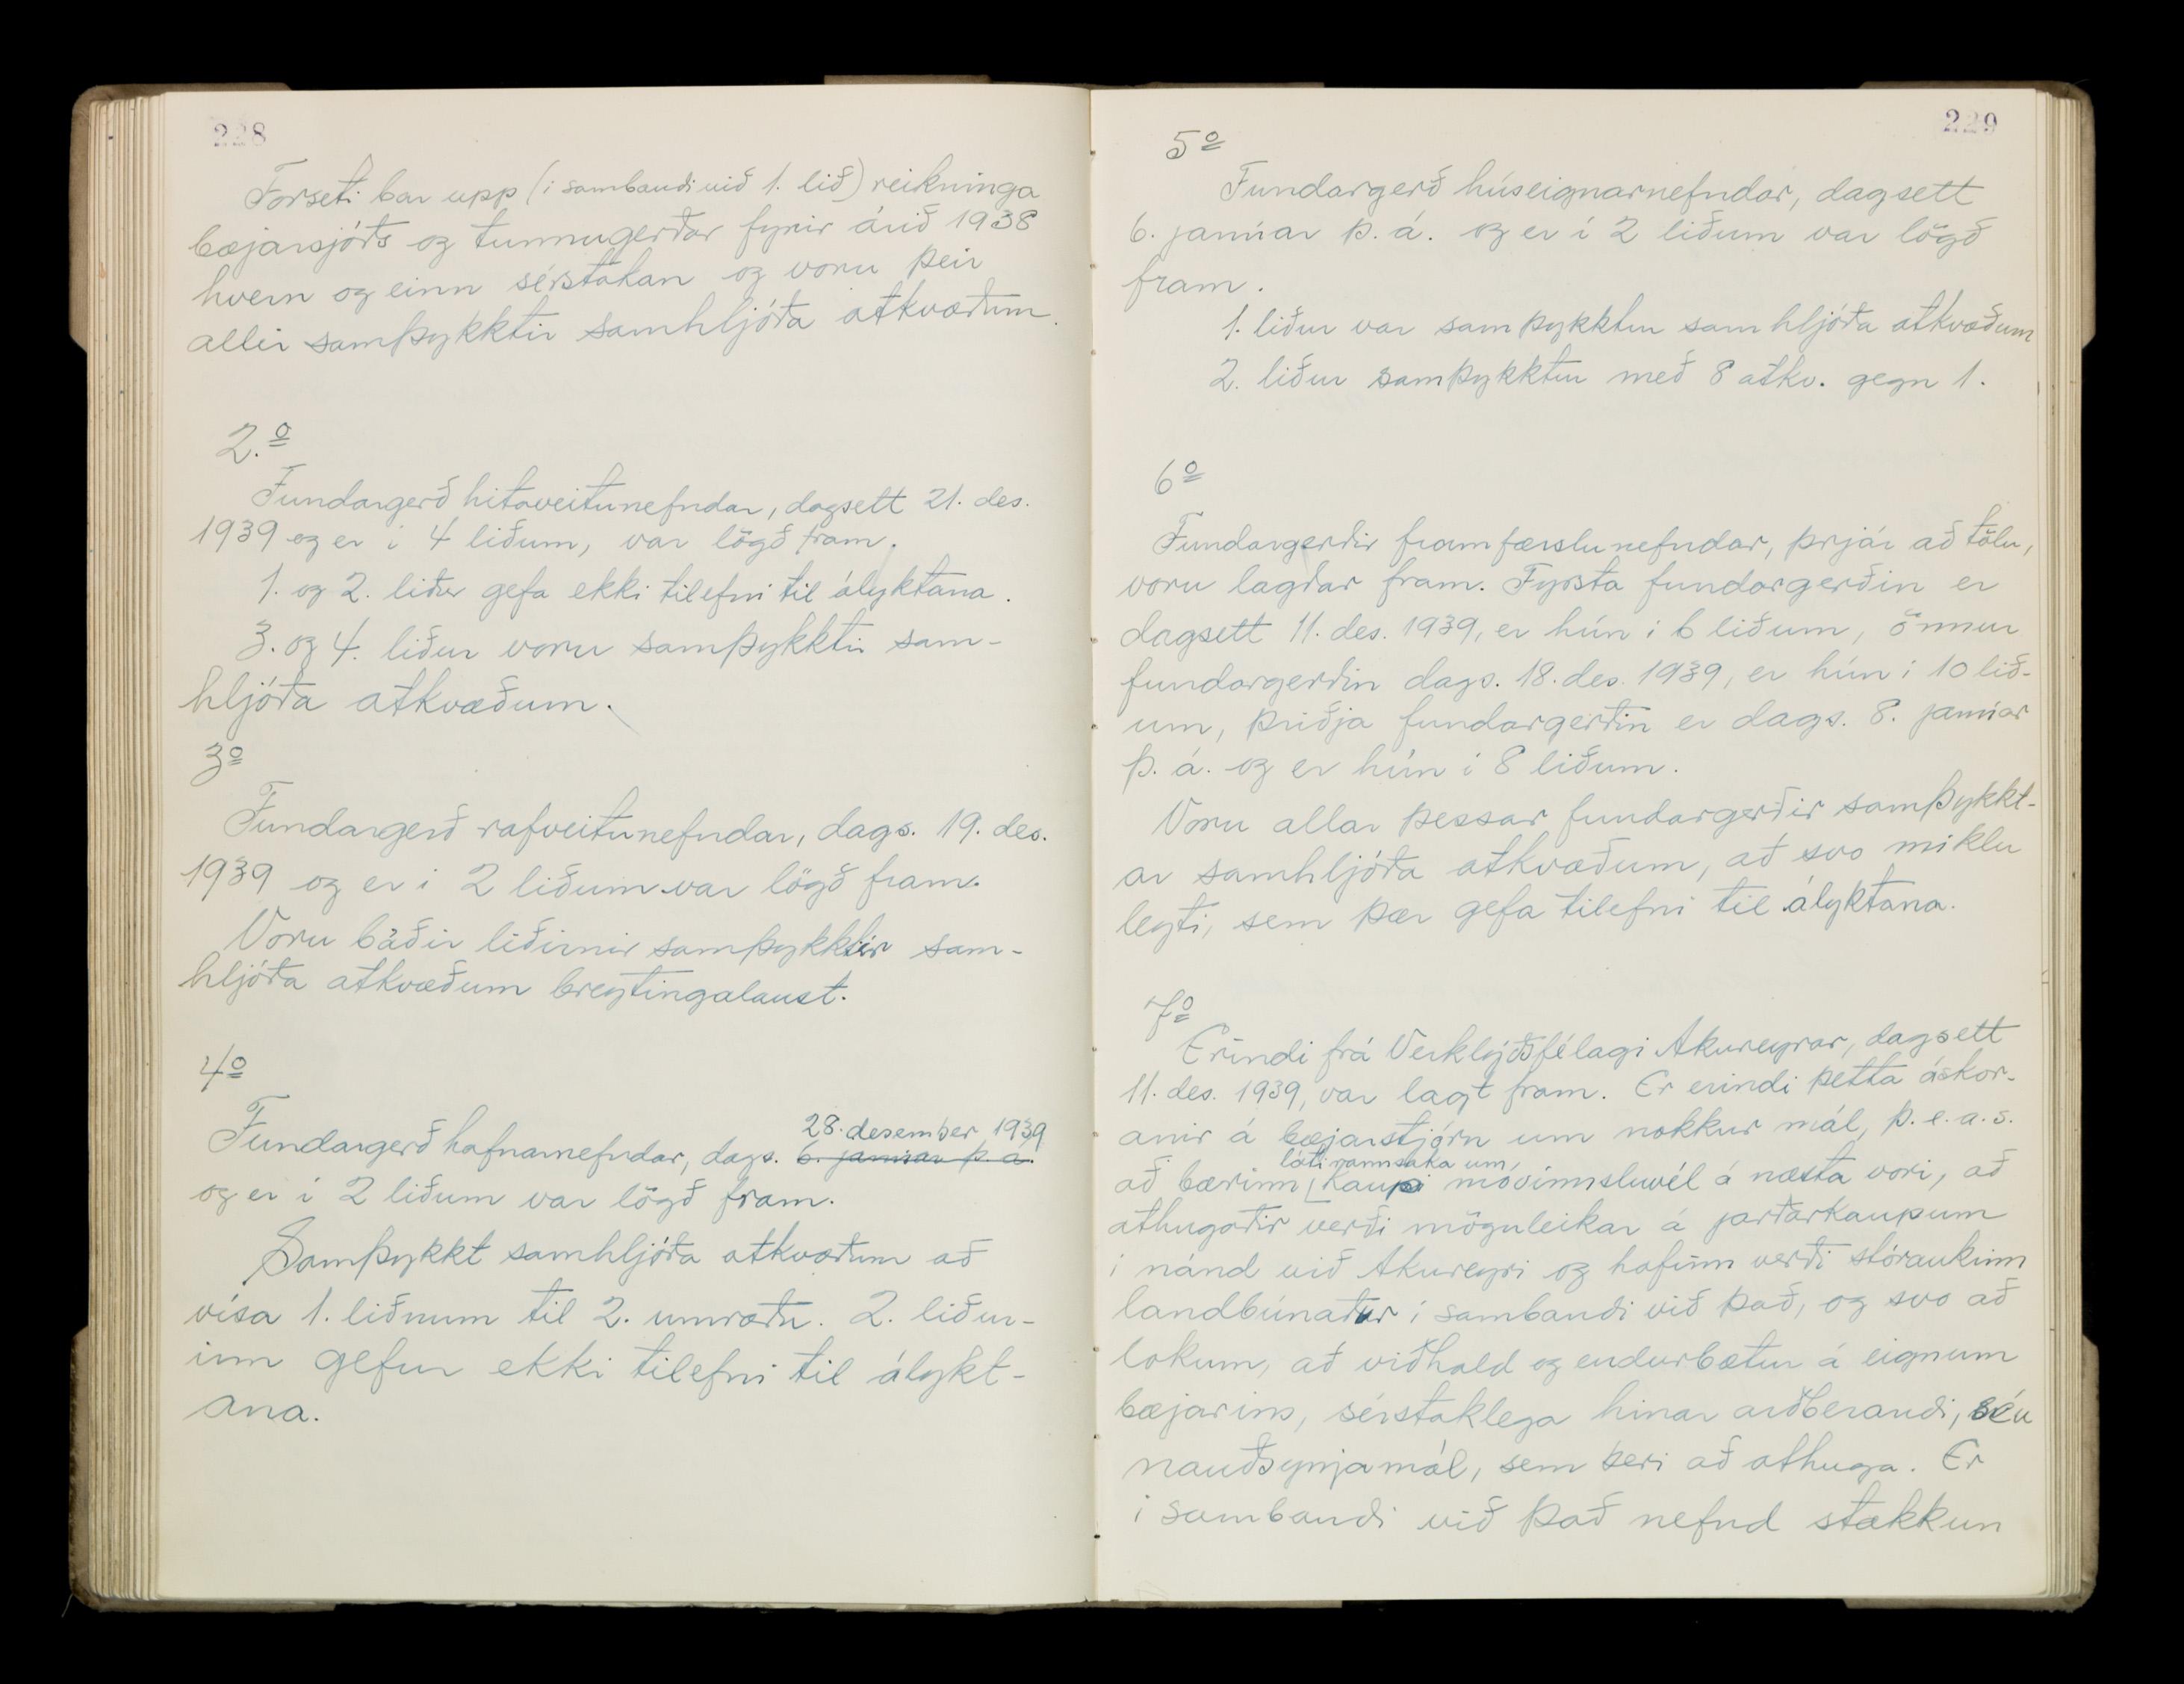 228
Forseti bar upp (í sambandi við 1. lið) reikninga
bæjarsjóðs og tunnugerðar fyrir árið 1938
hvern og einn sérstakan og voru þeir
allir samþykktir samhljóða atkvæðum.
2.o
Fundargerð hitaveitunefndar, dagsett 21. des.
1939 og er í 4 liðum, var lögð fram.
1. og 2. liður gefa ekki tilefni til ályktana.
3. og 4. liður voru samþykktir sam-
hljóða atkvæðum.
3o
Fundargerð rafveitunefndar, dags. 19. des.
1939 og er í 2 liðum var lögð fram.
Voru báðir liðirnir samþykktir sam-
hljóða atkvæðum breytingalaust.
4o
28. desember 1939
Fundargerð hafnarnefndar, dags. 6. janúar þ. á.
og er í 2 liðum var lögð fram.
Samþykkt samhljóða atkvæðum að
vísa 1. liðnum til 2. umræðu. 2. liður-
inn gefur ekki tilefni til álykt-
ana.
229
5o
Fundargerð húseignarnefndar, dagsett
6. janúar þ. á. og er í 2 liðum var lögð
fram.
1. liður var samþykktur samhljóða atkvæðum
2. liður samþykktur með 8 atkv. gegn 1.
6o
Fundargerðir framfærslunefndar, þrjár að tölu,
voru lagðar fram. Fyrsta fundargerðin er
dagsett 11. des. 1939, er hún í 6 liðum, önnur
fundargerðin dags. 18. des. 1939, er hún í 10 lið-
um, þriðja fundargerðin er dags. 8. janúar
þ. á. og er hún í 8 liðum.
Voru allar þessar fundargerðir samþykkt-
ar samhljóða atkvæðum, að svo miklu
leyti, sem þær gefa tilefni til ályktana.
7o
Erindi frá Verklýðsfélagi Akureyrar, dagsett
11. des. 1939, var lagt fram. Er erindi þetta áskor-
anir á bæjarstjórn um nokkur mál, þ. e. a. s.
láti rannsaka um
að bærinn kaupi móvinnsluvél á næsta vori, að
athugaðir verði möguleikar á jarðarkaupum
í nánd við Akureyri og hafinn verði stóraukinn
landbúnaður í sambandi við það, og svo að
lokum, að viðhald og endurbætur á eignum
bæjarins, sérstaklega hinar arðberandi, séu
nauðsynjamál, sem beri að athuga. Er
í sambandi við það nefnd stækkun